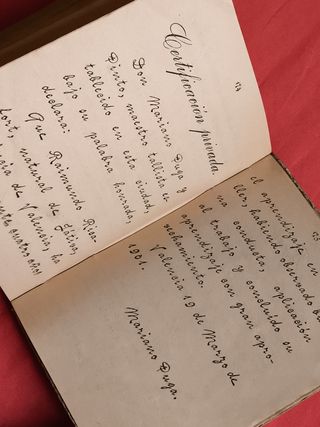 Certificación privada.
Don Mariano Puga y
Pinto, maestro tallista es-
tablecido en esta ciudad,
bajo su palabra honrada,
declara:
Que Raimundo Rica-
dort, natural de Játiva,
de Valencia, ha
cuatro años
el aprendizaje en
ller, habiendo observado
na conducta, aplicación
al trabajo y concluido su
aprendizaje con gran apro-
vechamiento.
Valencia 19 de Marzo de
1901.
Mariano Puga.